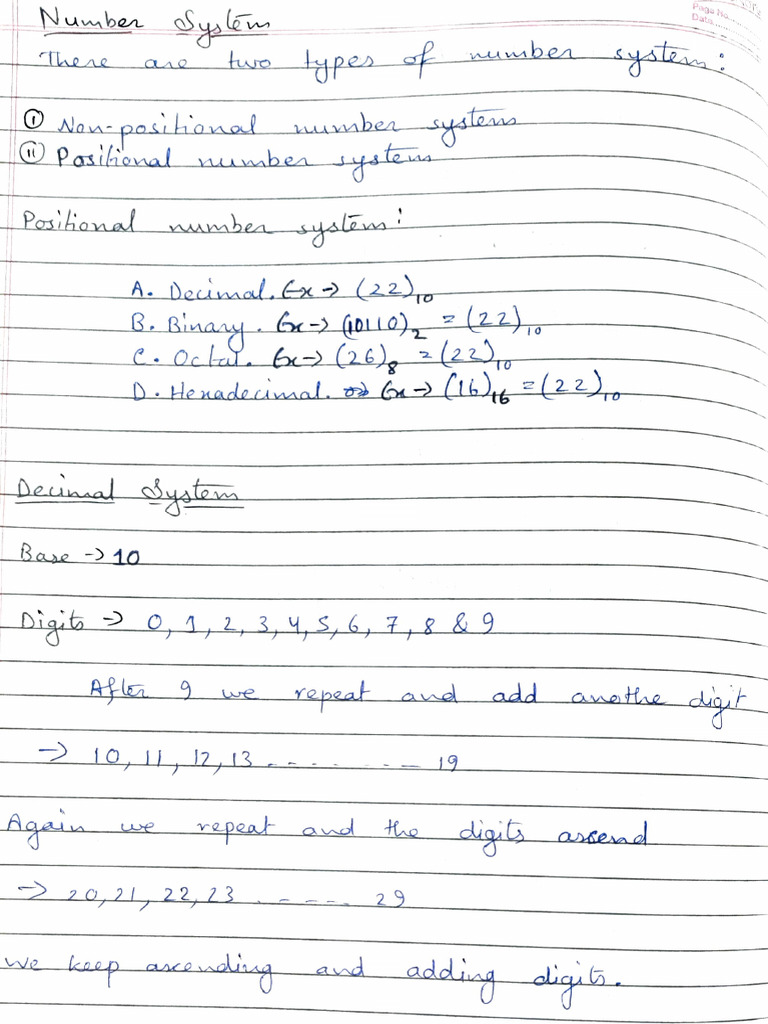 Page No.
Date
Number System
There are two types of number system:
(i) Non-positional number system
(ii) Positional number system
Positional number system:
A. Decimal. Ex → (22)₁₀
B. Binary. Ex → (10110)₂ = (22)₁₀
C. Octal. Ex → (26)₈ = (22)₁₀
D. Hexadecimal. Ex → (16)₁₆ = (22)₁₀
Decimal System
Base → 10
Digits → 0, 1, 2, 3, 4, 5, 6, 7, 8 & 9
After 9 we repeat and add anothe digit
→ 10, 11, 12, 13 - - - - - - - - 19
Again we repeat and the digits ascend
→ 20, 21, 22, 23 - - - - - - 29
we keep ascending and adding digits.